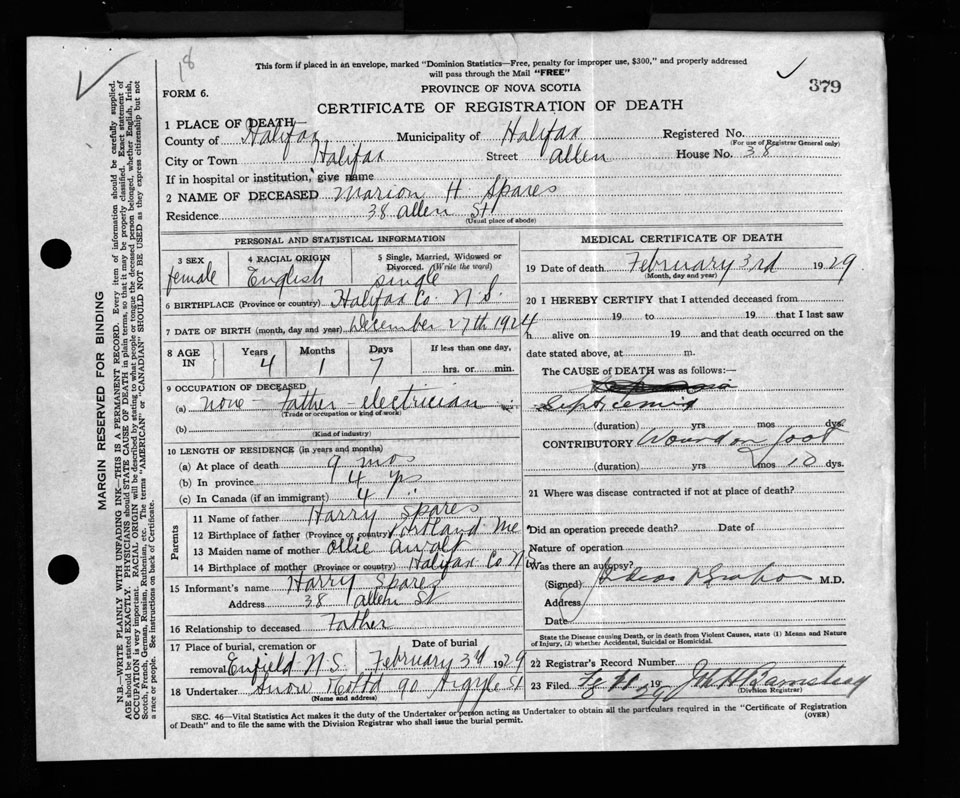 18
This form if placed in an envelope, marked "Dominion Statistics—Free, penalty for improper use, $300," and properly addressed
will pass through the Mail "FREE"
379
FORM 6.
PROVINCE OF NOVA SCOTIA
CERTIFICATE OF REGISTRATION OF DEATH
1 PLACE OF DEATH
County of Halifax Municipality of Halifax Registered No.
(For use of Registrar General only)
City or Town Halifax Street Allen House No. 38
If in hospital or institution, give name
2 NAME OF DECEASED Marion H Spares
Residence 38 Allen St
(Usual place of abode)
PERSONAL AND STATISTICAL INFORMATION
3 SEX 4 RACIAL ORIGIN 5 Single, Married, Widowed or
Divorced. (Write the word)
female English single
6 BIRTHPLACE (Province or country) Halifax Co. N.S.
7 DATE OF BIRTH (month, day and year) December 27th 1924
8 AGE IN Years Months Days If less than one day,
4 1 7 hrs. or min.
9 OCCUPATION OF DECEASED
(a) none - Father electrician
(Trade or occupation or kind of work)
(b)
(Kind of industry)
10 LENGTH OF RESIDENCE (in years and months)
(a) At place of death 9 mos
(b) In province 4 yrs
(c) In Canada (if an immigrant) 4
Parents
11 Name of father Harry Spares
12 Birthplace of father (Province or country) Portland Me
13 Maiden name of mother Ollie Awalt
14 Birthplace of mother (Province or country) Halifax Co N
15 Informant's name Harry Spares
Address 38 Allen St
16 Relationship to deceased Father
17 Place of burial, cremation or Date of burial
removal Enfield N.S. February 3rd 1929
18 Undertaker Snow & Co Ltd 90 Argyle St
(Name and address)
MEDICAL CERTIFICATE OF DEATH
19 Date of death February 3rd 1929
(Month, day and year)
20 I HEREBY CERTIFY that I attended deceased from
19 to 19 that I last saw
h alive on 19 and that death occurred on the
date stated above, at m.
The CAUSE of DEATH was as follows:—
Septicemia
(duration) yrs mos dys.
CONTRIBUTORY Wound on foot
(duration) yrs mos 10 dys.
21 Where was disease contracted if not at place of death?
Did an operation precede death? Date of
Nature of operation
Was there an autopsy?
(Signed) M.D.
Address
Date
State the Disease causing Death, or in death from Violent Causes, state (1) Means and Nature
of Injury, (2) whether Accidental, Suicidal or Homicidal.
22 Registrar's Record Number
23 Filed 19
(Division Registrar)
SEC. 46—Vital Statistics Act makes it the duty of the Undertaker or person acting as Undertaker to obtain all the particulars required in the "Certificate of Registration
of Death" and to file the same with the Division Registrar who shall issue the burial permit.
(OVER)
MARGIN RESERVED FOR BINDING
N.B.—WRITE PLAINLY WITH UNFADING INK—THIS IS A PERMANENT RECORD. Every item of information should be carefully supplied.
AGE should be stated EXACTLY. PHYSICIANS should STATE CAUSE OF DEATH in plain terms, so that it may be properly classified. Exact statement of
OCCUPATION is very important. RACIAL ORIGIN will be described by stating to what people or tongue the deceased person belonged, whether English, Irish,
Scotch, French, German, Russian, Ruthenian, etc. The terms "AMERICAN" or "CANADIAN" SHOULD NOT BE USED as they express citizenship but not
a race or people. See instructions on back of Certificate.